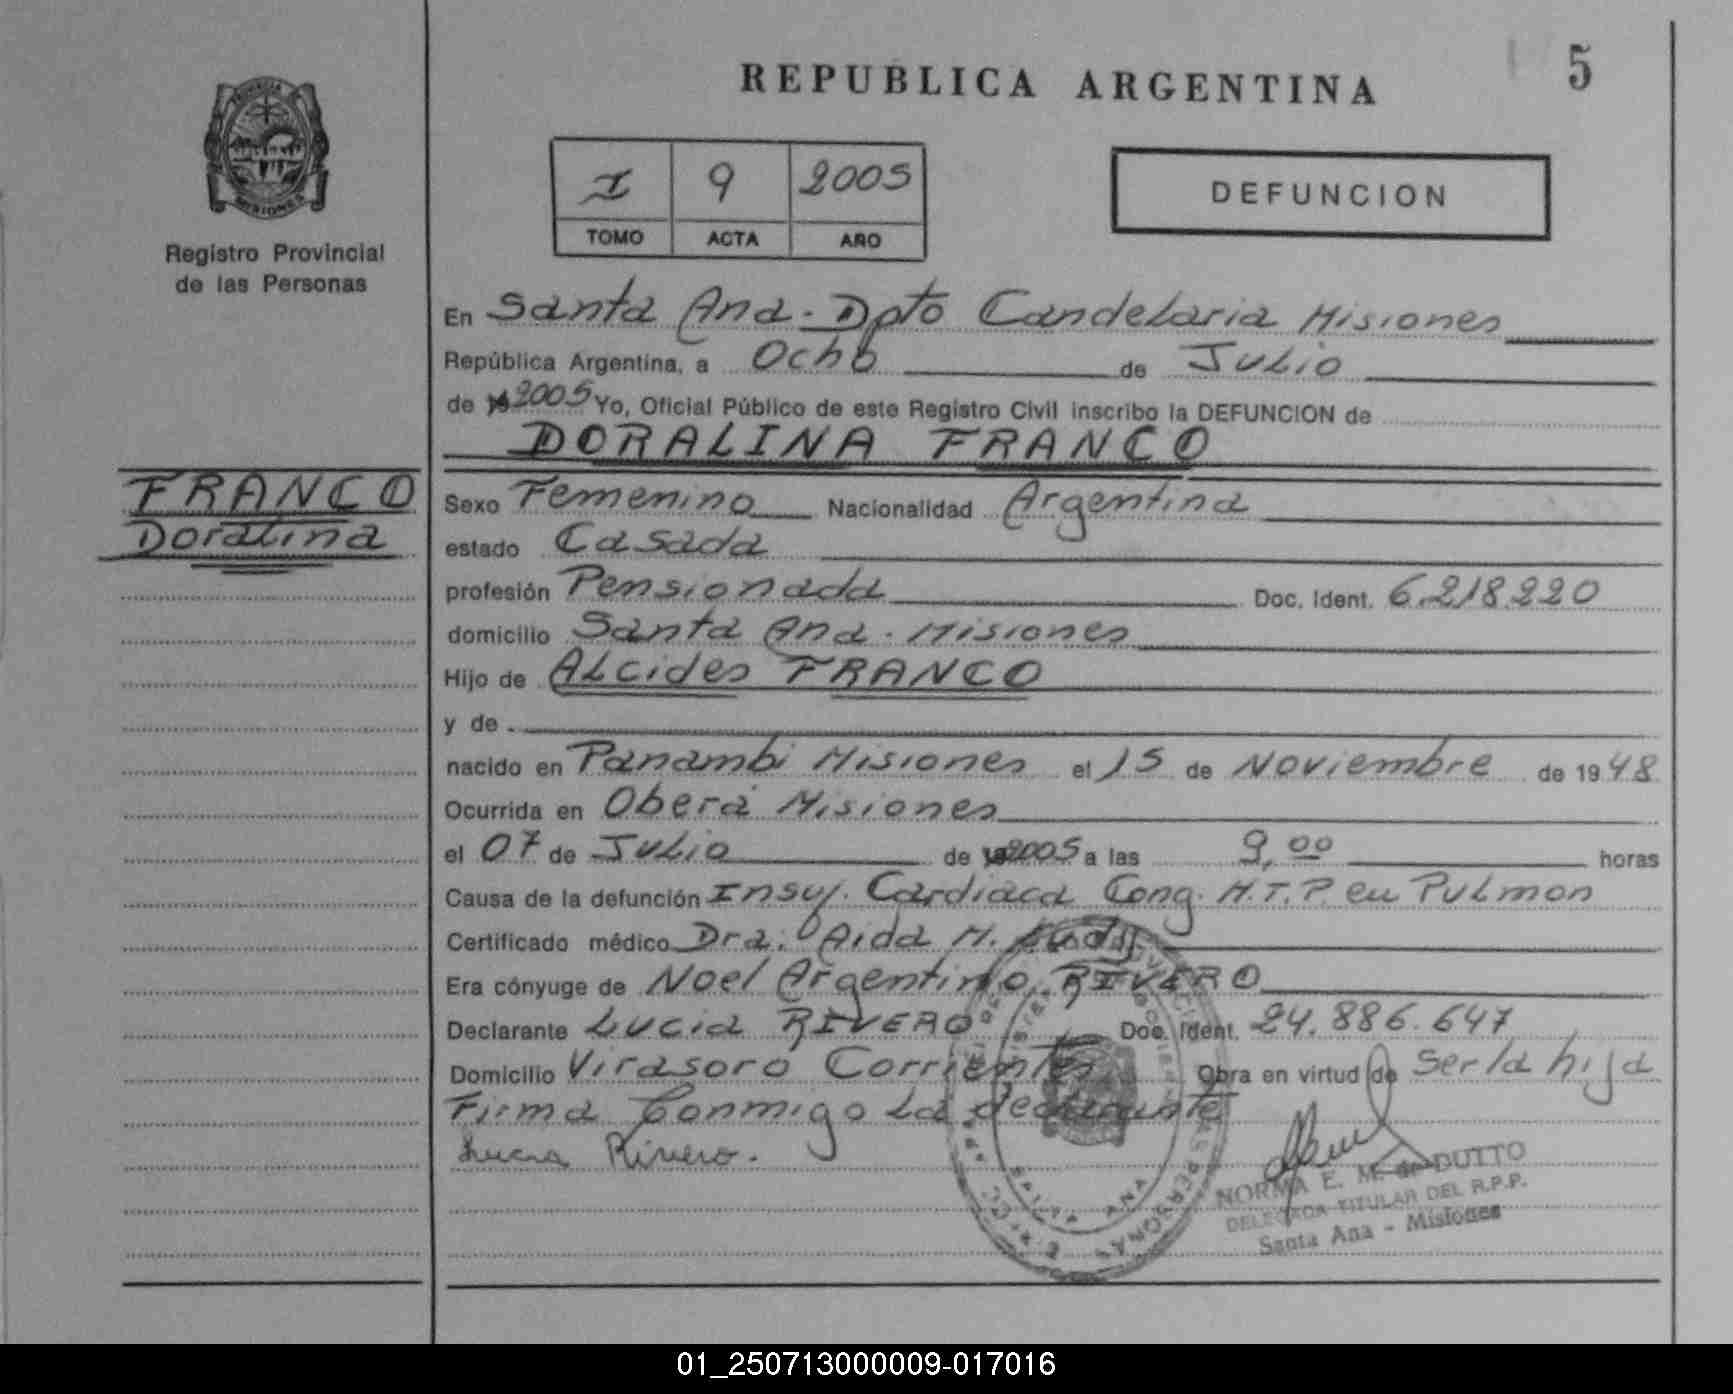 REPUBLICA ARGENTINA
5
PROVINCIA
MISIONES
Registro Provincial
de las Personas
I 9 2005
TOMO ACTA AÑO
DEFUNCION
En Santa Ana - Dpto Candelaria Misiones
República Argentina, a Ocho de Julio
de 19 2005 Yo, Oficial Público de este Registro Civil inscribo la DEFUNCION de
DORALINA FRANCO
FRANCO
Doralina
Sexo Femenino Nacionalidad Argentina
estado Casada
profesión Pensionada Doc. Ident. 6.218.220
domicilio Santa Ana - Misiones
Hijo de ALcides FRANCO
y de
nacido en Panambi Misiones el 15 de Noviembre de 1948
Ocurrida en Oberá Misiones
el 07 de Julio de 19 2005 a las 9,00 horas
Causa de la defunción Insuf. Cardiaca Cong. H.T.P. en Pulmon
Certificado médico Dra. Aida M.
Era cónyuge de Noel Argentino RIVERO
Declarante Lucia RIVERO Doc. Ident. 24.886.647
Domicilio Virasoro Corrientes Obra en virtud de ser la hija
Firma Conmigo la declarante
Lucia Rivero.
NORMA E. M. de DUTTO
DELEGADA TITULAR DEL R.P.P.
Santa Ana - Misiones
01_250713000009-017016